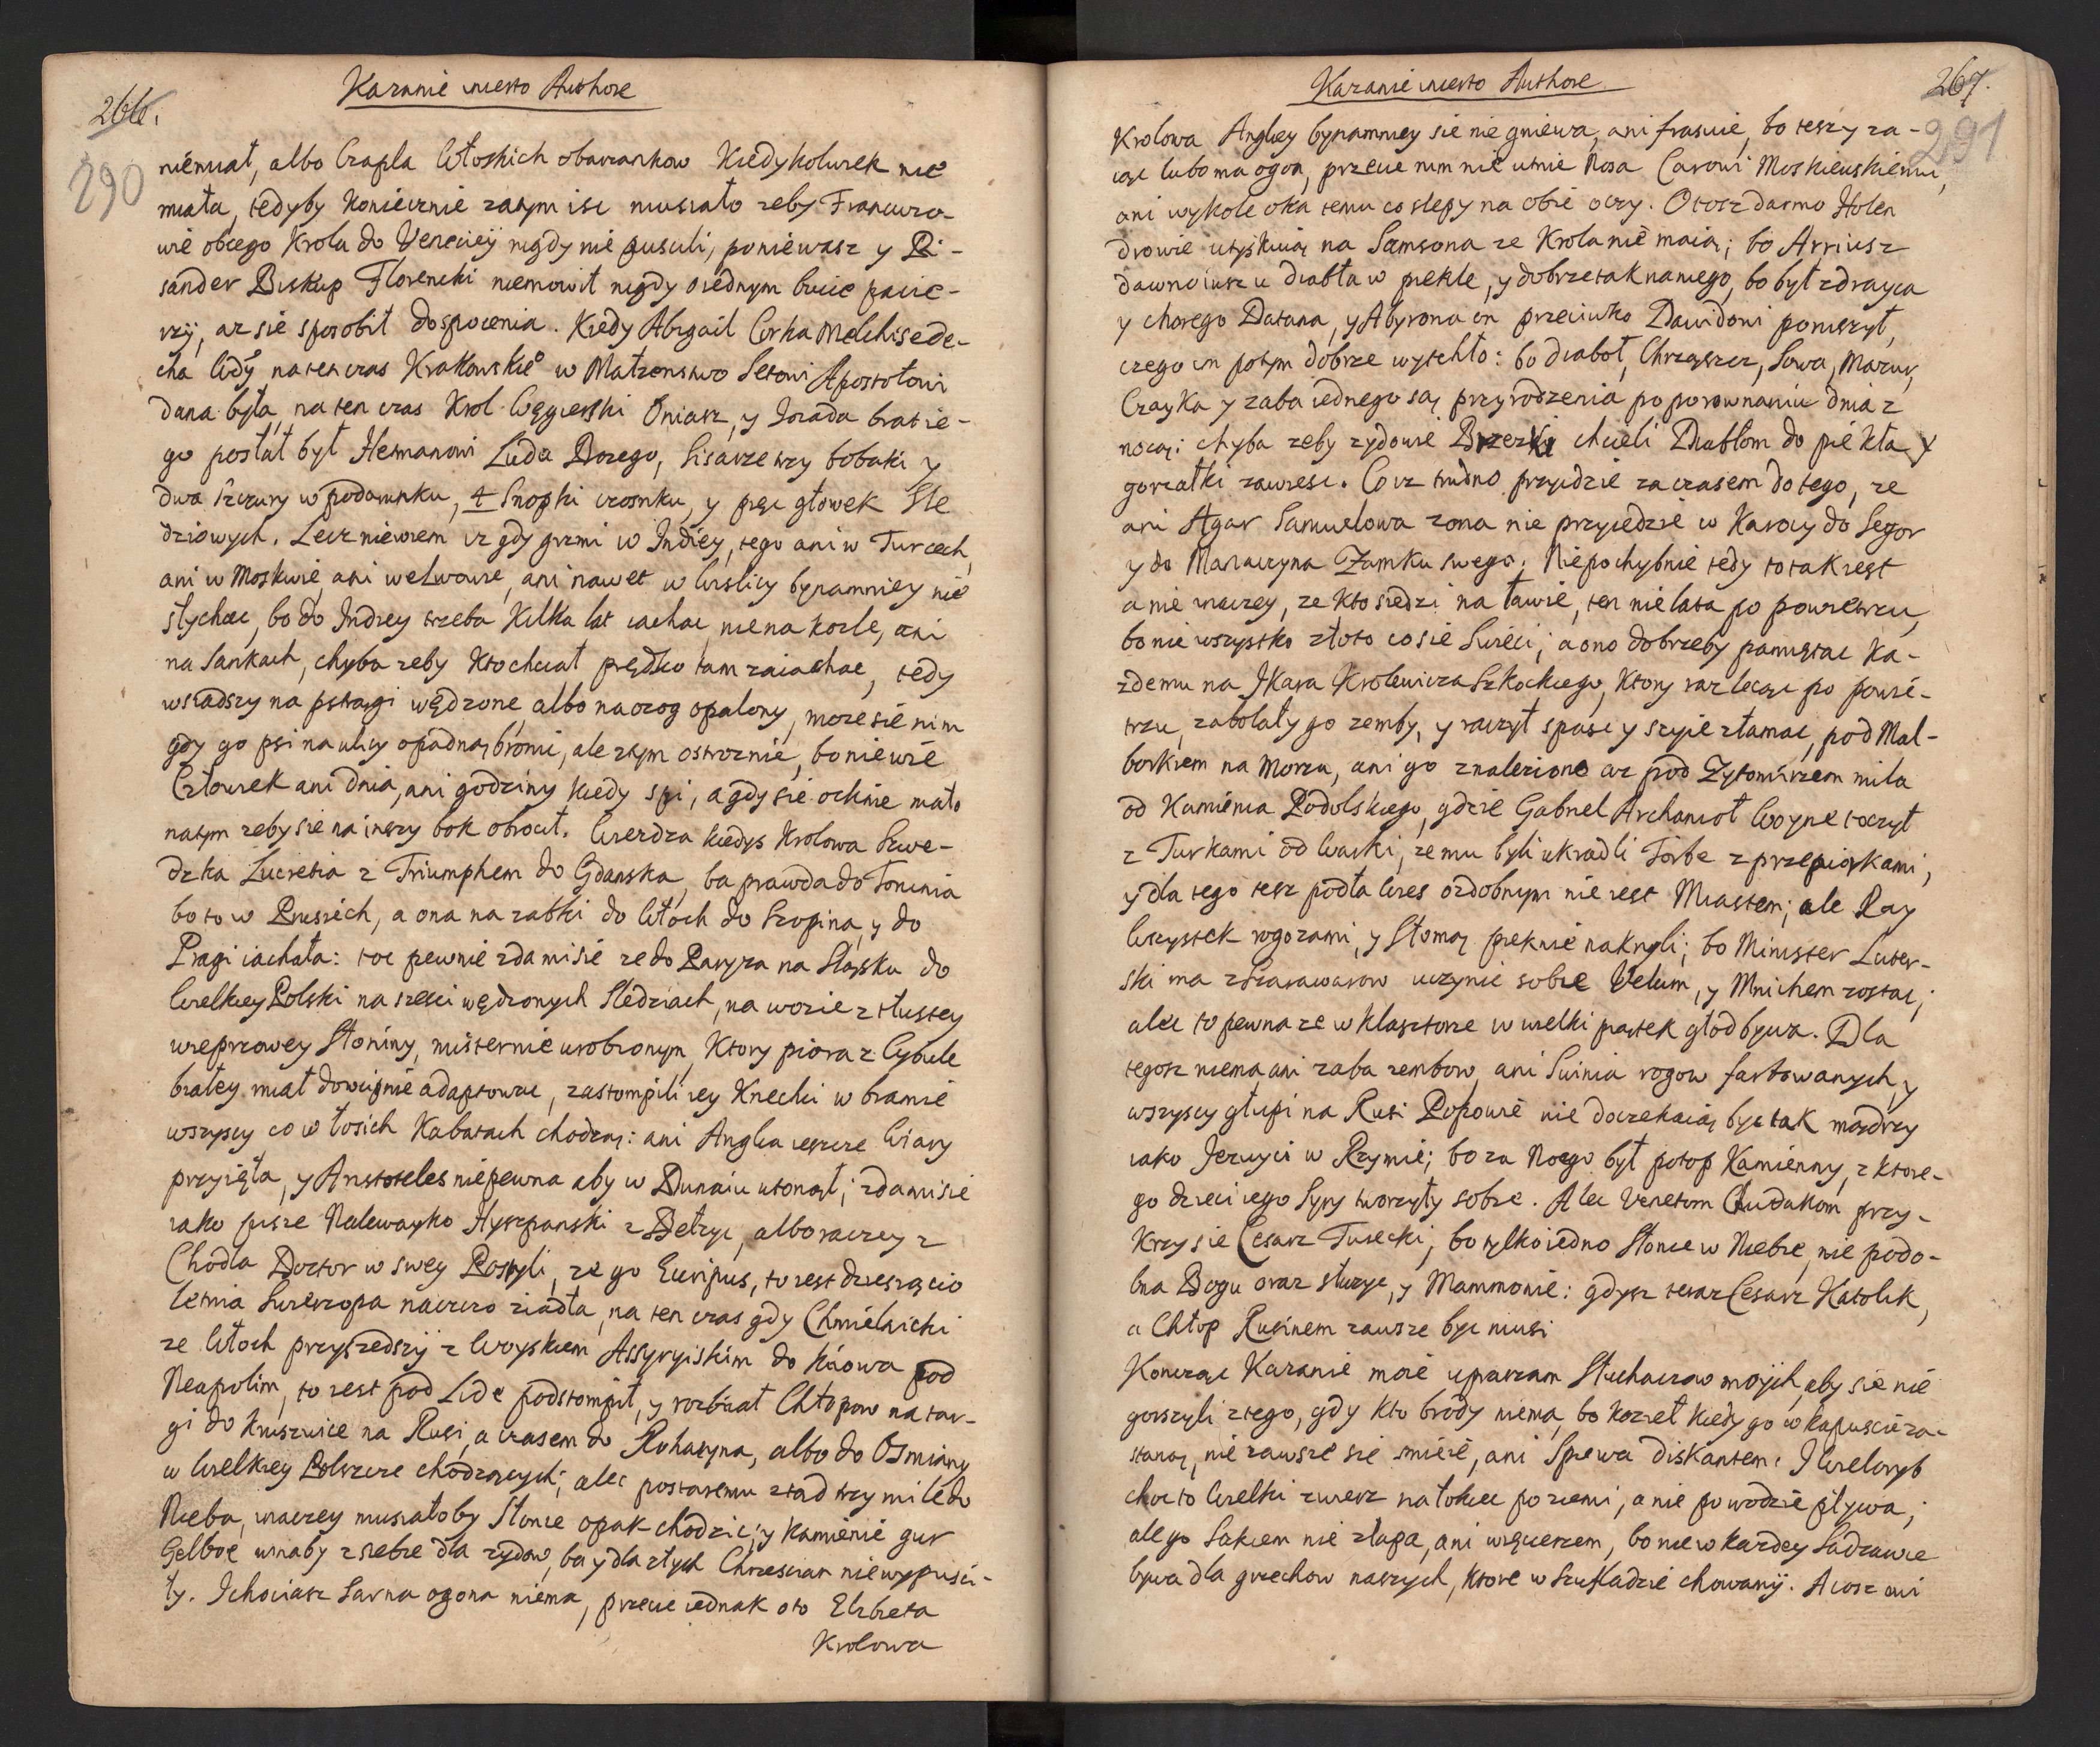 Kazanie incerto Authore
266.
290
niemiał, albo Czapla Włoskich obarzankow kiedykolwiek nie
miała, tedyby koniecznie zatym isc musiało zeby Francuzo-
wie obcego Krola do Veneciey nigdy nie pusuli, poniewasz y Li-
sander Biskup Florencki niemowił nigdy o iednym bucie pacie-
rzy, az sie sposobił do spocenia. Kiedy Abigail Corka Melchisede-
cha Wdy na ten czas Krakowskie° w Małzenstwo Setowi Apostołowi
dana była, na ten czas Krol Węgierski Oniasz, y Joiada brat ie-
go posłał był Hetmanowi Luda Bozego, Lisarze wzy bobaki y
dwa szczury w podarunku, 4 Snopki czosnku, y pięc głowek Sle
dziowych. Lecz niewiem iz gdy grzmi w Indiey, tego ani w Turcech,
ani w Moskwie, ani we Lwowie, ani nawet w Wislicy bynamniey nie
słychac, bo do Indiey trzeba kilka lat iachac nie na kozle, ani
na Sankach, chyba zeby kto chciał prędko tam zaiachac, tedy
wsiadszy na pstrągi wędzone albo na ozog opalony, moze sie nim
gdy go psi na ulicy opadną bronic, ale z tym ostroznie, bo nie wie
Człowiek ani dnia, ani godziny kiedy spi, a gdy sie ocknie mało
natym zeby sie na inszy bok obrocił. Wierdza kiedys Krolowa Szwe-
dzka Lucretia z Triumphem do Gdanska, ba prawda do Torunia
bo to w Prusiech, a ona na zabki do Włoch do Szopina, y do
Pragi iachała: toc pewnie zda mi sie ze do Paryza na Sląsku do
Wielkiey Polski na szesci wędzonych Sledziach, na wozie z tłustey
wieprzowey Słoniny, misternie urobionym, ktory piora z Cybule
białey miał dowcipnie adaptowne, zastompili iey Knechci w bramie
wszyscy co w łosich Kabatach chodzą: ani Anglia ieszcze Wiary
przyięła, y Aristoteles niepewna aby w Dunaiu utonął; zda mi sie
iako pisze Nalewayko Hyszpanski z Betzyc, albo raczey z
Chodla Doctor w swey Postyli, ze go Euripus, to iest dziesięcio
letnia Swiekropa naczczo ziadła, na ten czas gdy Chmielnicki
ze Włoch przyszedszy z Woyskiem Assyryiskim do Kiiowa pod
Neapolim, to iest pod Lidę podstompił, y rozbiiał Chłopow na tar-
gi do Kruszwice na Rusi, a czasem do Rohatyna, albo do Osmiany
w Wielkiey Polszcze chodzących; alec postaremu ztad trzy mile do
Nieba, inaczey musiałoby Słonce opak chodzic; y kamienie gur
Gelboe winaby z siebie dla zydow, ba y dla złych Chrzescian niewypusci-
ły. I chociasz Sarna ogona niema, przecie iednak oto Elzbieta
Krolowa
Kazanie incerto Authore
267.
291
Krolowa Angliey bynamniey sie nie gniewa, ani frasuie, bo teszy za-
iąc lubo ma ogon, przecie nim nie utnie Nosa Carowi Moskiewskiemu,
ani wykole oka temu co slepy na obie oczy. Otosz darmo Holen
drowie utyskuią na Samsona ze Krola nie maią; bo Arriusz
dawno iusz u diabła w piekle, y dobrze tak naniego, bo był zdrayca
y chorego Datana, y Abyrona on przeciwko Dawidowi poruszył,
czego on potym dobrze wytchło: bo diaboł, Chrząszcz, Sowa, Mazur,
Czayka y zaba iednego są przyrodzenia po porownaniu dnia z
nocą: chyba zeby zydowie Brzezki chcieli Diabłom do piekła y
gorzałki zawiesc. Co iz trudno przyidzie za czasem do tego, ze
ani Agar Samuelowa zona nie przyiedzie w Karocy do Segor
y do Maraczyna Zamku swego. Niepochybnie tedy to tak iest
a nie inaczey, ze kto siedzi na ławie, ten nie lata po powietrzu,
bo nie wszystko złoto co sie Swieci; a ono dobrzeby pamiętac ka-
zdemu na Ikara Krolewicza Szkockiego, ktory raz lecąc po powie-
trzu, zabolały go zemby, y raczył spasc y szyie złamac, pod Mal-
borkiem na Morzu, ani go znaleziono az pod Zytomirzem mila
od Kamienia Podolskiego, gdzie Gabriel Archanioł Woynę toczył
z Turkami od Waski, ze mu byli ukradli Torbe z przepiorkami,
y dla tego tesz podła Wies ozdobnym nie iest Miastem; ale Ray
Wszystek rogozami, y Słomą pieknie nakryli; bo Minister Luter-
ski ma z Szarawarow uczynic sobie Velum, y Mnichem zostac;
alec to pewna ze w Klasztorze w wielki piątek głod bywa. Dla
tegosz niema ani zaba zembow, ani Swinia rogow farbowanych, y
wszyscy głupi na Rusi Popowie nie doczekaią byc tak mądrzy
iako Jezuyci w Rzymie; bo za Noego był potop Kamienny, z ktore-
go dzieci iego Syry tworzyły sobie. Alec Venetom Chudakom przy-
krzy sie Cesarz Turecki, bo tylko iedno Słonce w Niebie, nie podo-
bna Bogu oraz słuzyc, y Mammonie: gdysz teraz Cesarz Katolik,
a Chłop Rusinem zawsze byc musi
Koncząc Kazanie moie upraszam Słuchaczow moiych, aby sie nie
gorszyli z tego, gdy kto brody niema, bo kozieł kiedy go w kapuscie za-
staną, nie zawsze sie smieie, ani Spiewa diskantem: I Wieloryb
choc to Wielki zwierz na tokiec po ziemi, a nie po wodzie pływa;
ale go Sakiem nie złapa, ani więcierzem, bo nie w kazdey Sadzawce
bywa dla grzechow naszych, ktore w Szufladzie chowamy. A cosz mi